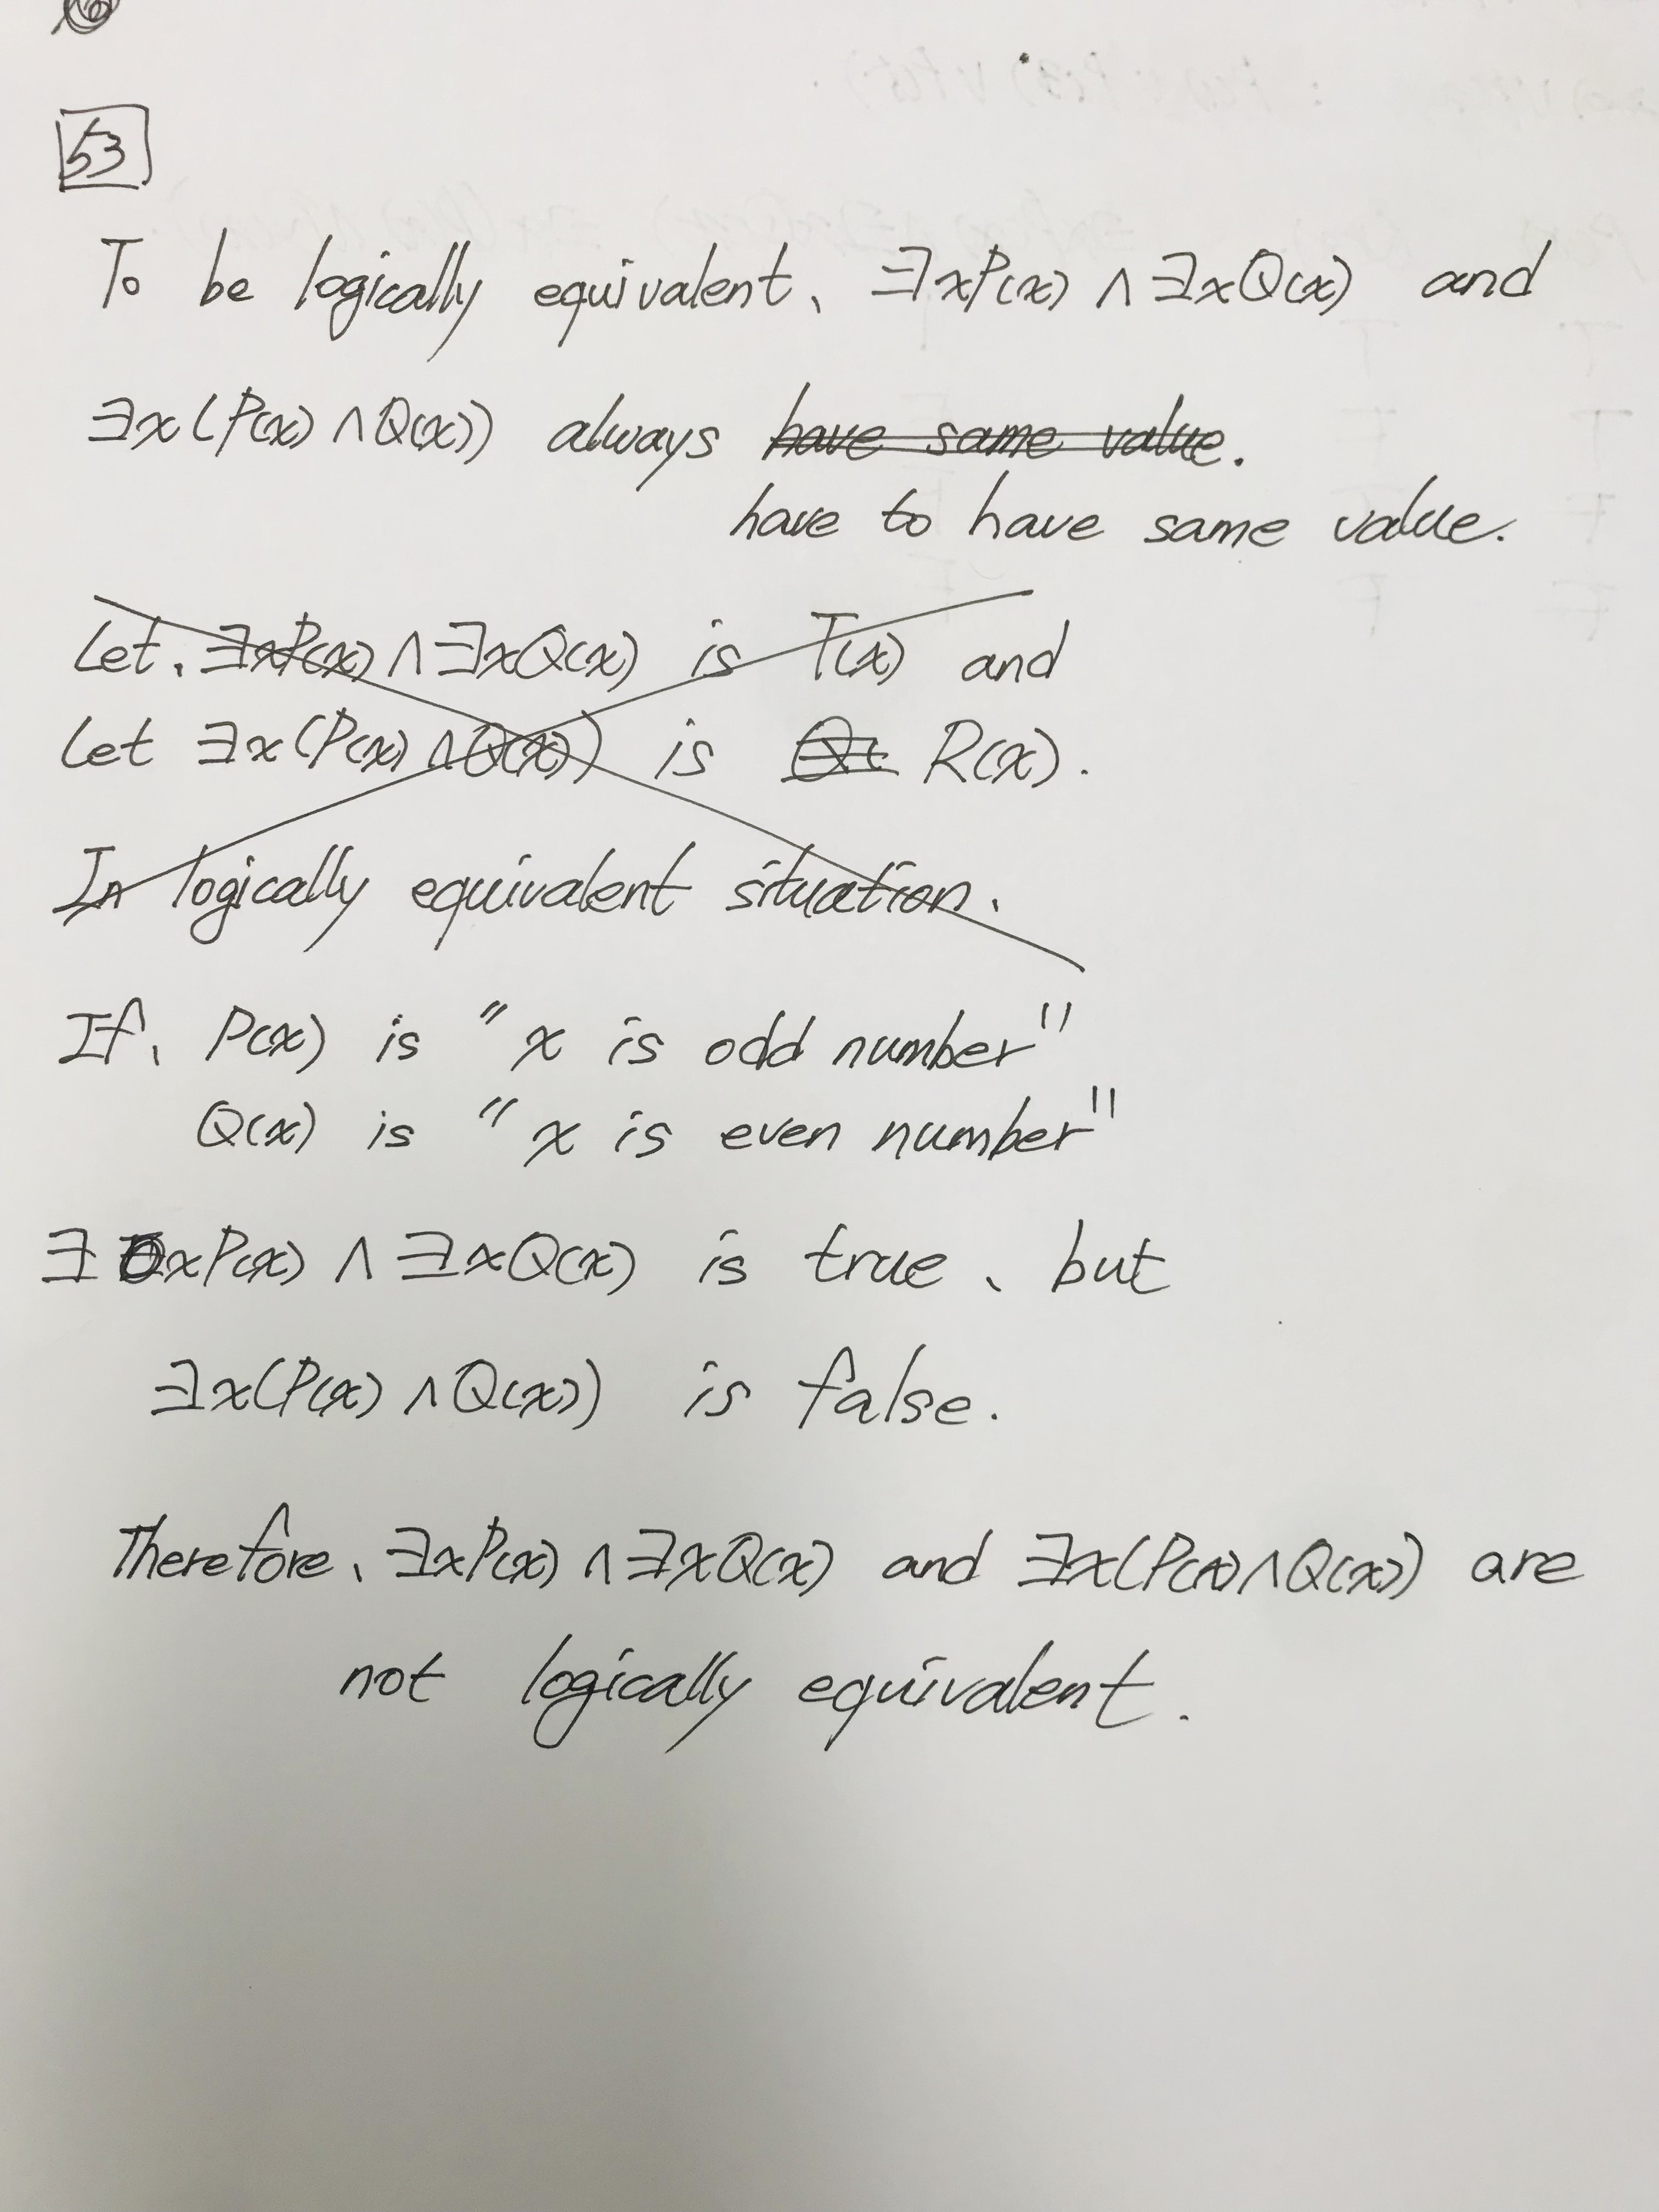 53
To be logically equivalent、 ∃xP(x) ∧ ∃xQ(x) and
∃x(P(x) ∧ Q(x)) always have same value.
have to have same value.
Let、 ∃xP(x) ∧ ∃xQ(x) is T(x) and
Let ∃x(P(x) ∧ Q(x)) is R(x).
In logically equivalent situation、
If、 P(x) is "x is odd number"
Q(x) is "x is even number"
∃ xP(x) ∧ ∃xQ(x) is true、 but
∃x(P(x) ∧ Q(x)) is false.
Therefore、 ∃xP(x) ∧ ∃xQ(x) and ∃x(P(x) ∧ Q(x)) are
not logically equivalent.